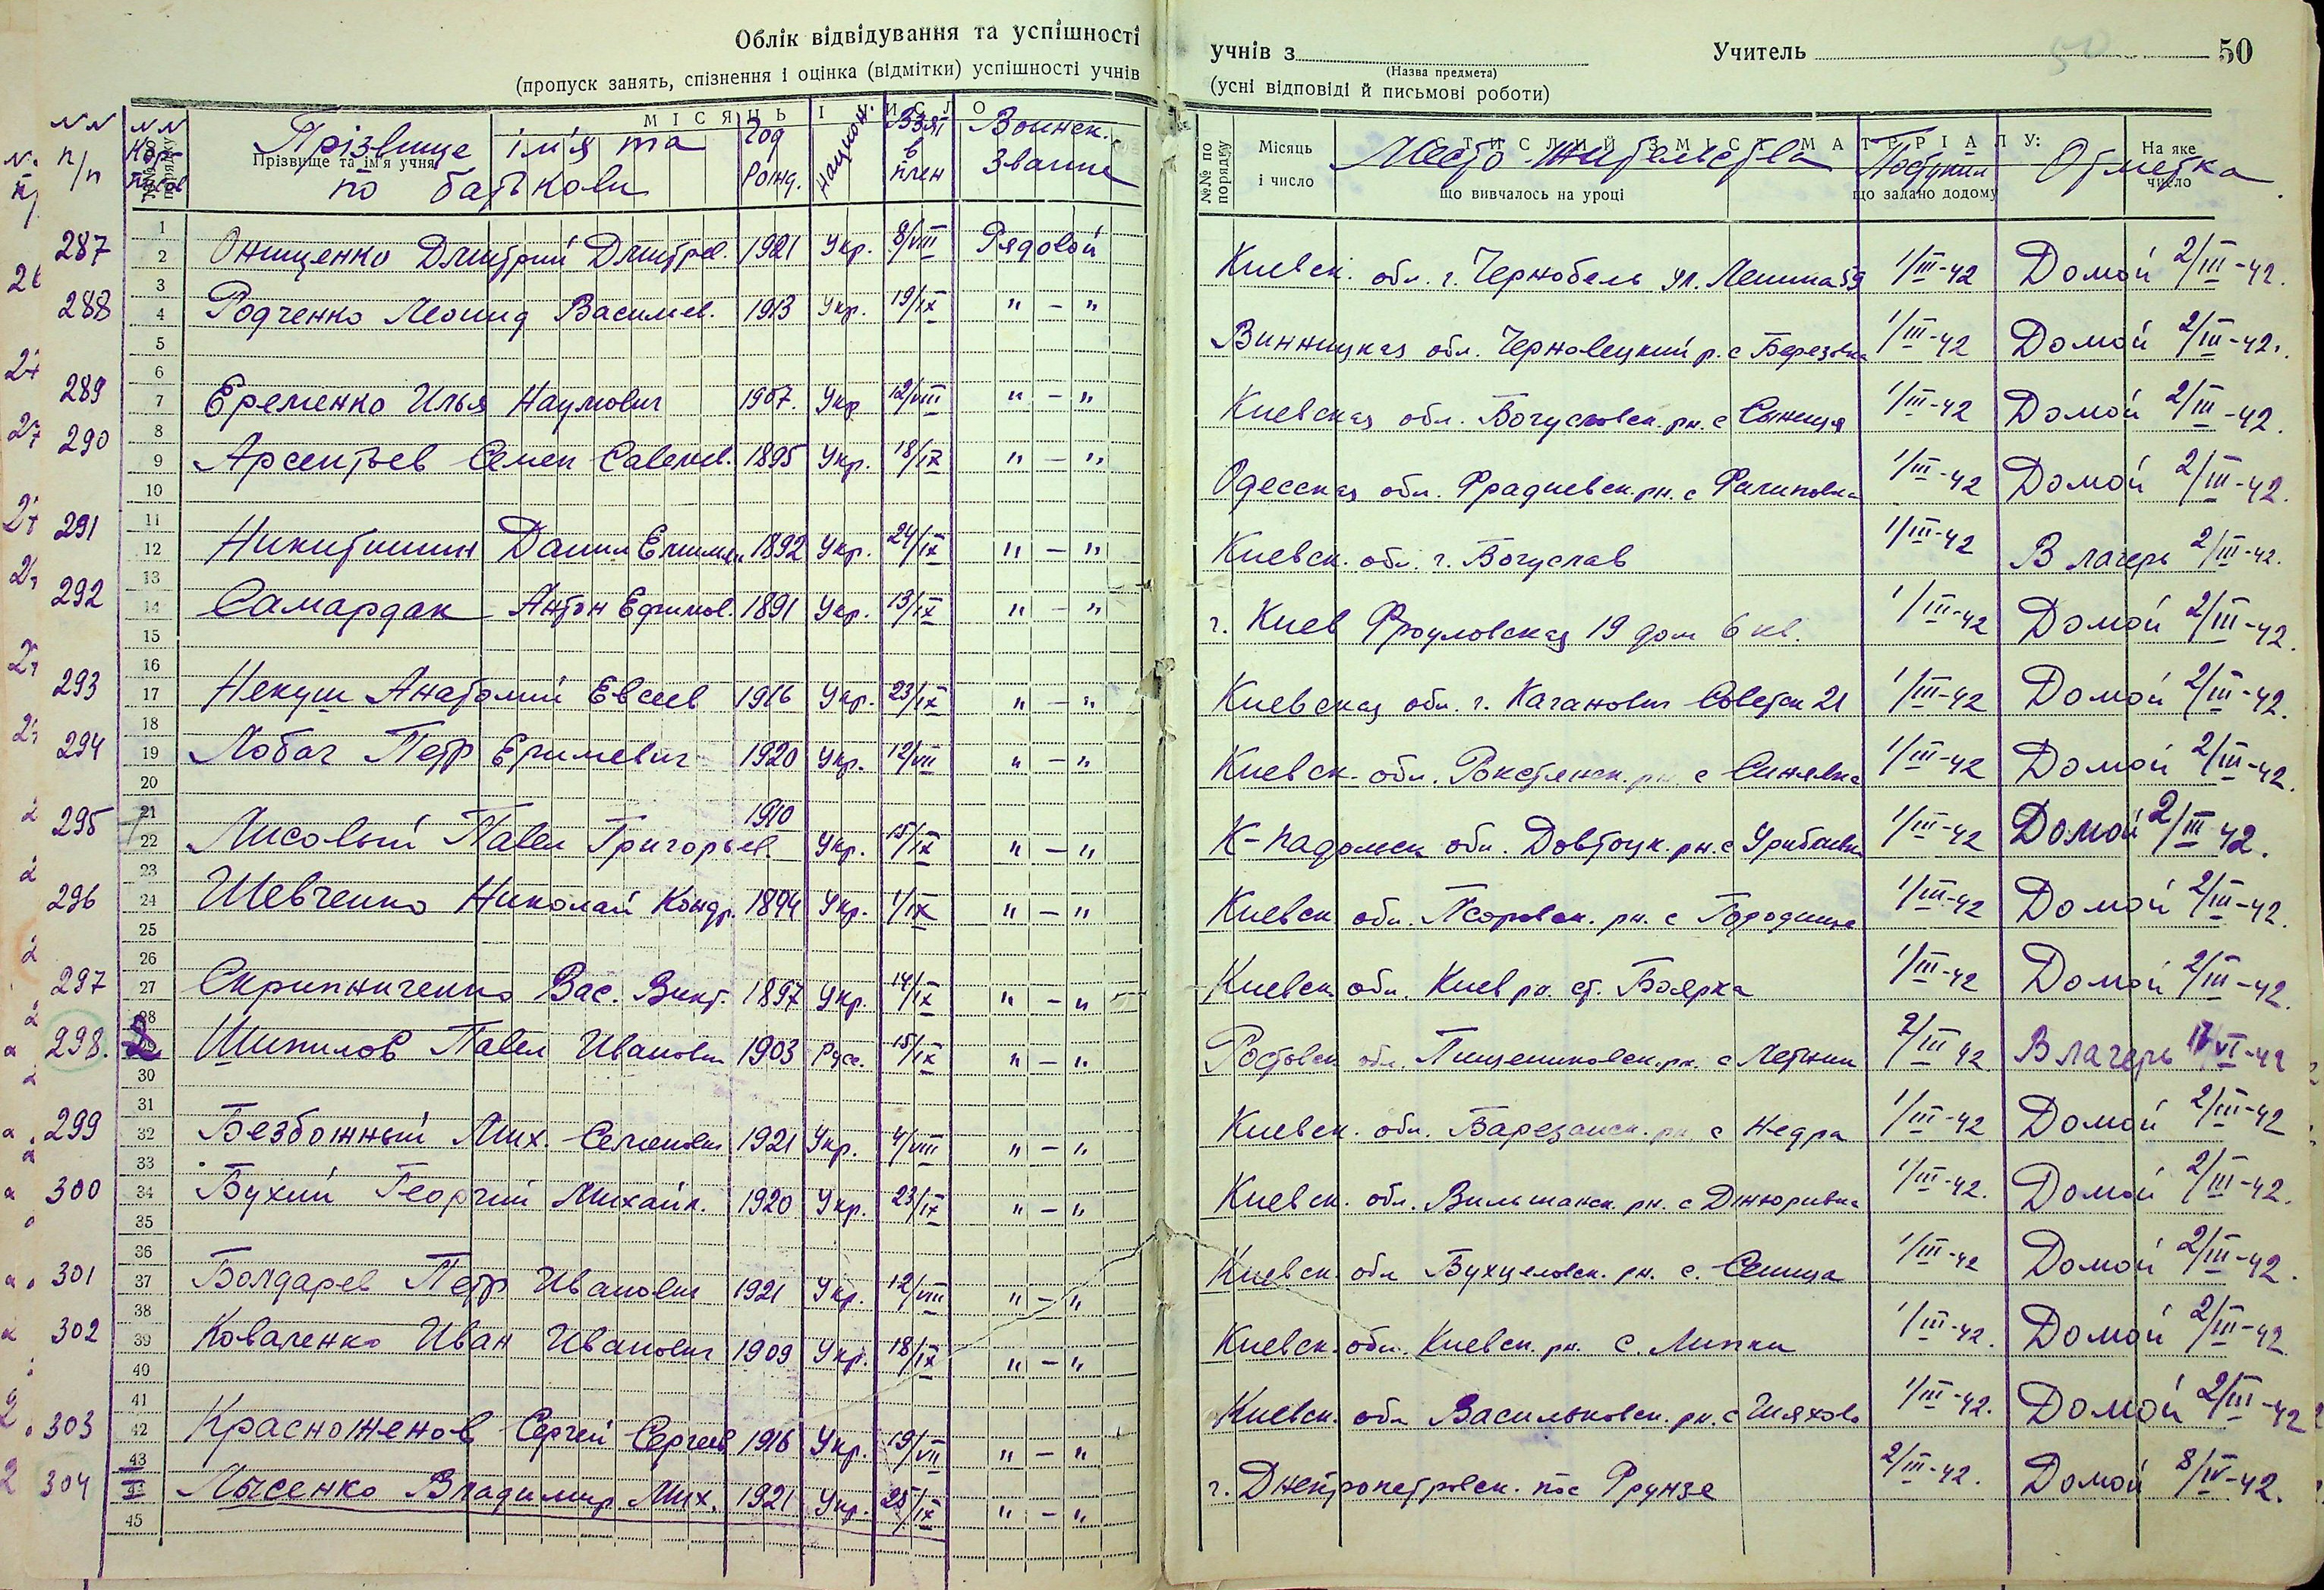 Облік відвідування та успішності учнів з Учитель 50
(Назва предмета)
(пропуск занять, спізнення і оцінка (відмітки) успішності учнів (усні відповіді й письмові роботи)
МІСЯЦЬ І ЧИСЛО
№№ п/п Прізвище ім'я та по батькови Год рожд. национ. Взят в плен Воинск. звание Место жительства Поступил Отметка
Прізвище та ім'я учня
№№ по порядку Місяць і число СТИСЛИЙ ЗМІСТ МАТЕРІАЛУ: що вивчалось на уроці що задано додому На яке число
287 Онищенко Дмитрий Дмитрев. 1921 Укр. 8/VIII Рядовой Киевск. обл. г. Чернобель ул. Ленина 59 1/III-42 Домой 2/III-42.
288 Родченко Леонид Василев. 1913 Укр. 19/IX " — " Винницкая обл. Черновецкий р. с Березовка 1/III-42 Домой 2/III-42.
289 Еременко Илья Наумович 1907. Укр 12/VIII " — " Киевская обл. Богуславск. рн. с Сыница 1/III-42 Домой 2/III-42.
290 Арсентьев Семен Савелев. 1895 Укр. 18/IX " — " Одесская обл. рн. с 1/III-42 Домой 2/III-42.
291 Никитишин Данил 1892 Укр. 24/IX " — " Киевск. обл. г. Богуслав 1/III-42 В лагерь 2/III-42.
292 Самардак Антон Ефимов. 1891 Укр. 13/IX " — " г. Киев Фроуловская 19 дом 6 кв. 1/III-42 Домой 2/III-42.
293 Некуш Анатолий Евсеев 1916 Укр. 23/IX " — " Киевская обл. г. Каганович Советск 21 1/III-42 Домой 2/III-42.
294 Лобач Петр 1920 Укр. 12/VII " — " Киевск. обл. рн. с Синявка 1/III-42 Домой 2/III-42.
295 Лисовый Павел Григорьев. 1910 Укр. 15/IX " — " К-Падольск обл. рн. с 1/III-42 Домой 2/III-42.
296 Шевченко Николай Кондр. 1894 Укр. 1/IX " — " Киевск обл. рн. с Городище 1/III-42 Домой 2/III-42.
297 Скрипниченко Вас. Викт. 1897 Укр. 14/IX " — " Киевск обл. Киев рн. ст. Боярка 1/III-42 Домой 2/III-42.
298. Шипилов Павел Иванович 1903 Русс. 15/IX " — " Ростовск обл. рн. с Летник 2/III 42. В лагерь 17/VI-42
299 Безбожный Мих. Семенович 1921 Укр. 4/VIII " — " Киевск. обл. Барезанск. рн. с Недра 1/III-42 Домой 2/III-42
300 Бухий Георгий Михайл. 1920 Укр. 23/IX " — " Киевск. обл. Вильшанск. рн. с Джюривка 1/III-42. Домой 2/III-42.
301 Болдарев Петр Иванович 1921 Укр. 12/VIII " — " Киевск. обл рн. с. 1/III-42 Домой 2/III-42.
302 Коваленко Иван Иванович 1909 Укр. 18/IX " — " Киевск. обл. Киевск. рн. с. Липки 1/III-42. Домой 2/III-42
303 Красноженов Сергей Сергеев 1916 Укр. 19/VII " — " Киевск. обл Васильковск. рн. с 1/III-42. Домой 2/III-42
304 Лысенко Владимир Мих. 1921 Укр. 25/IX " — " г. Днепропетровск. пос Фрунзе 2/III-42. Домой 8/IV-42.